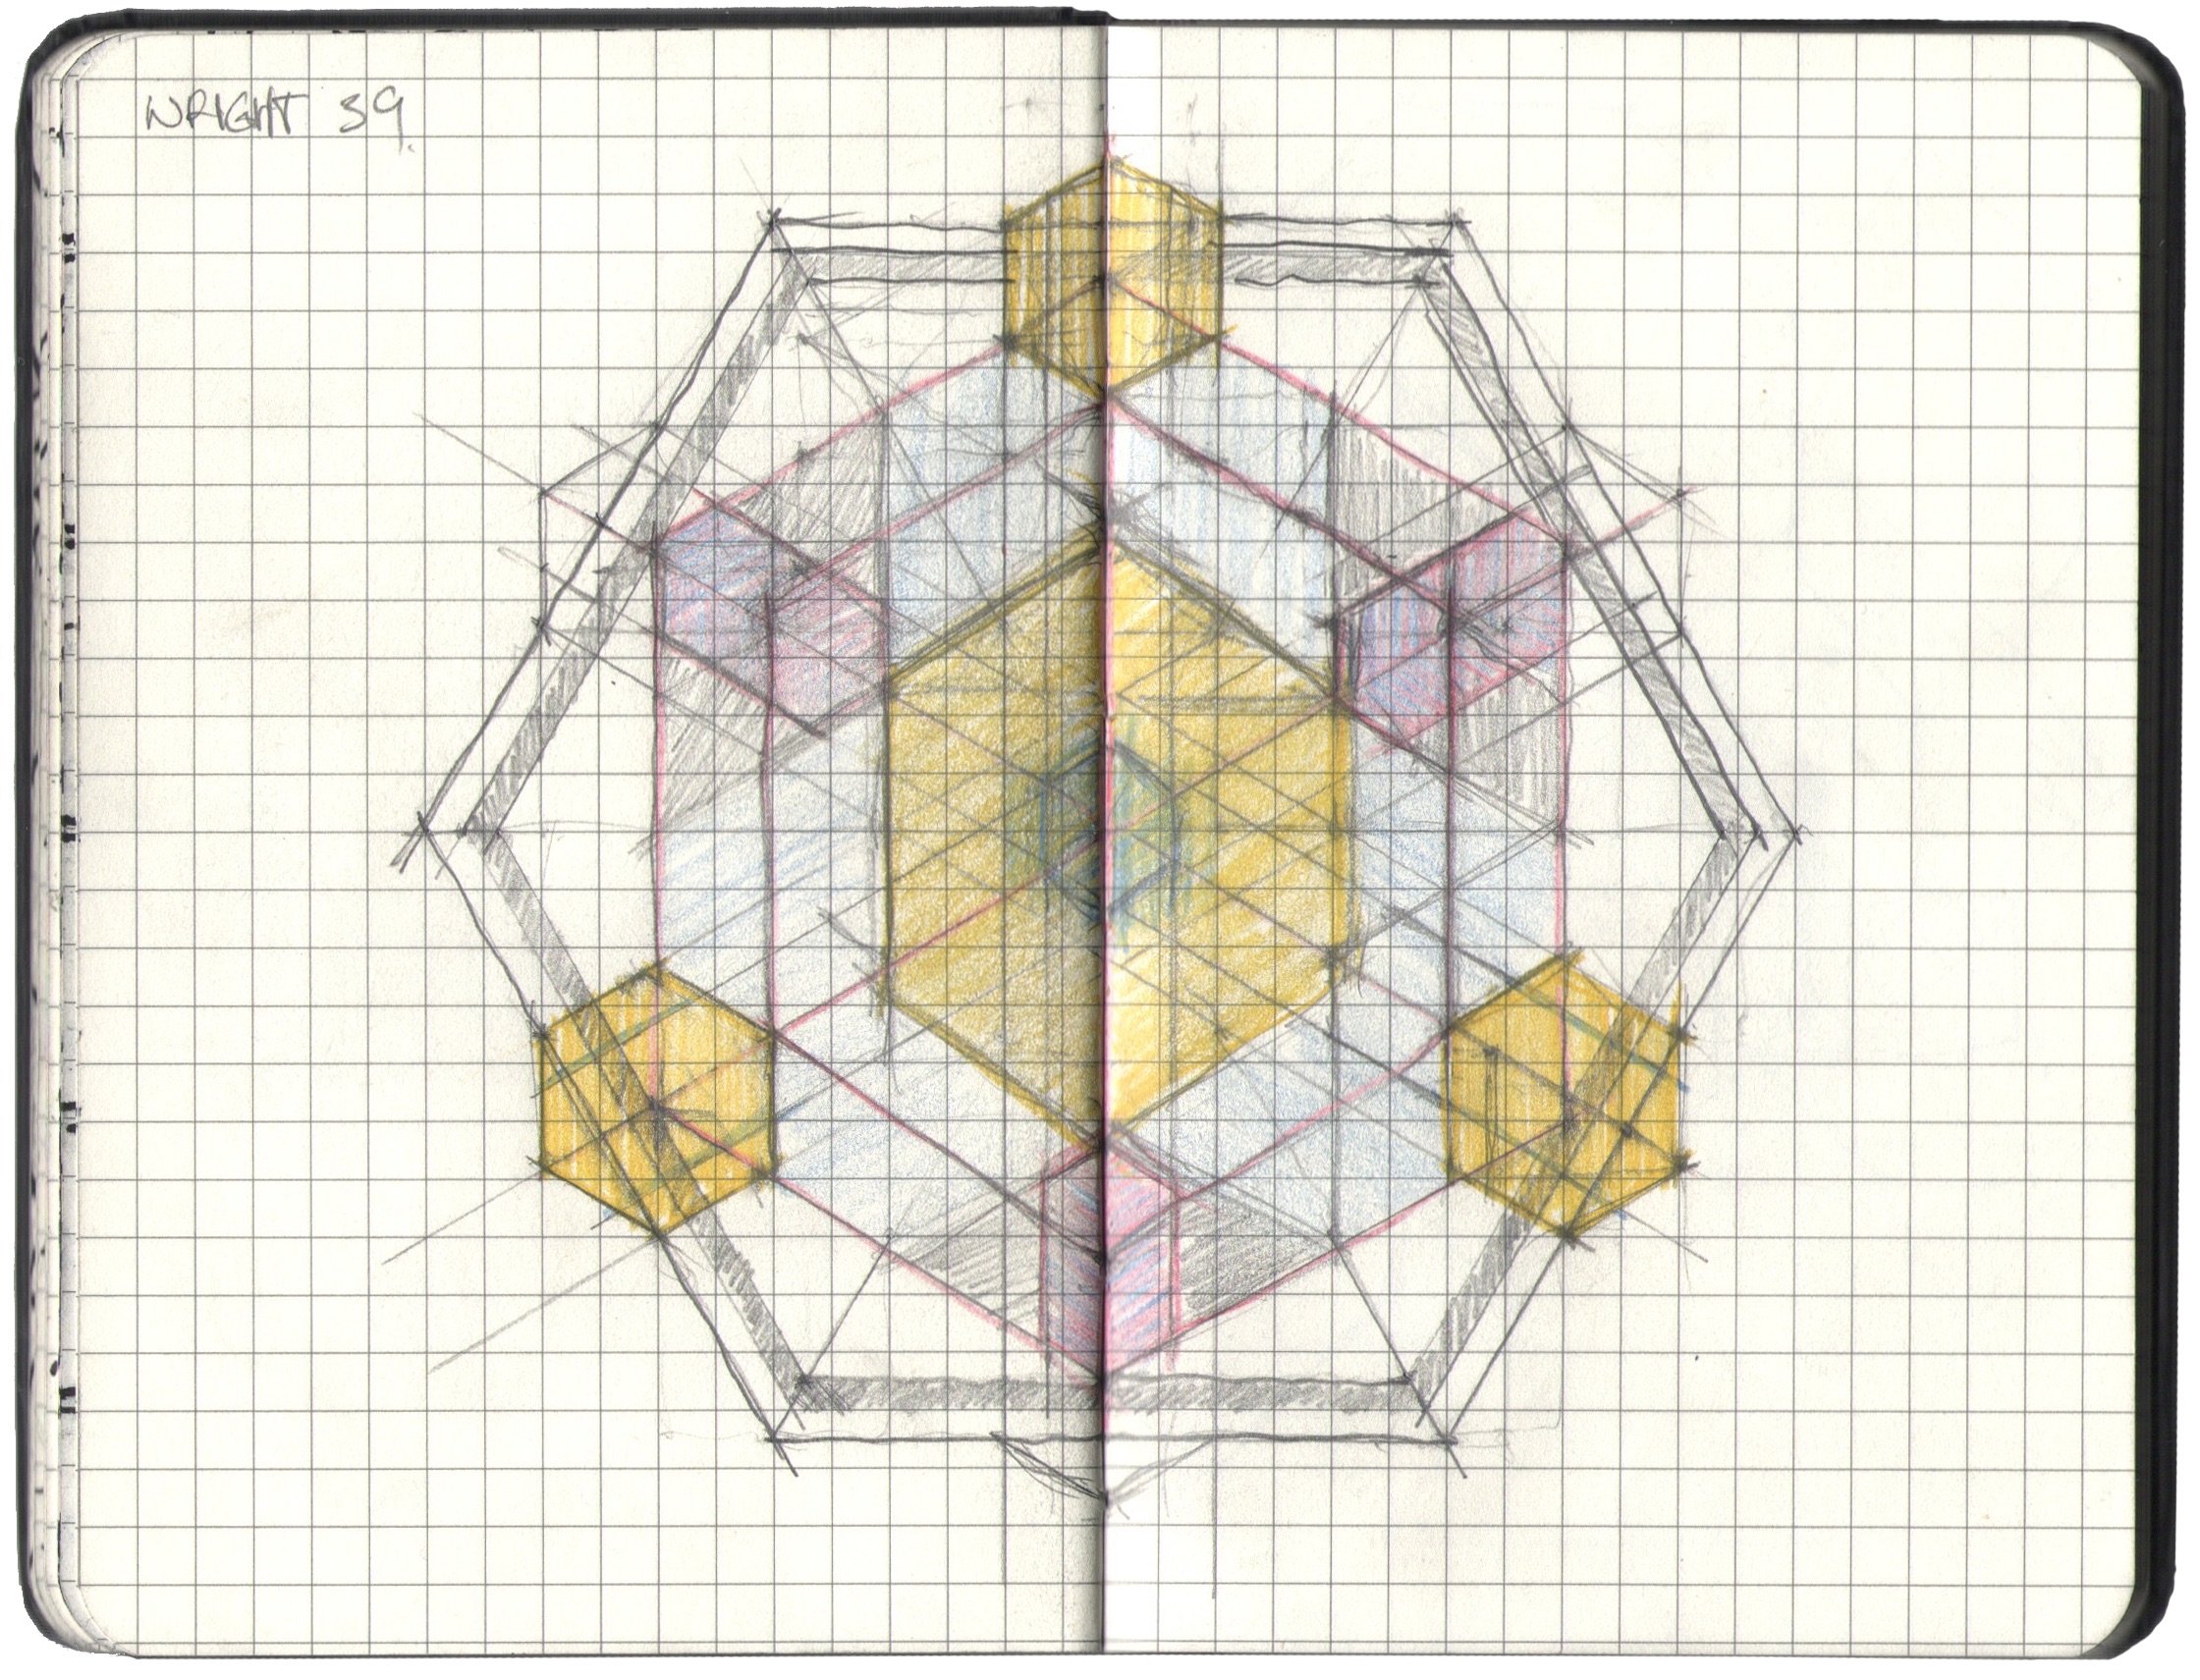 WRIGHT 39.